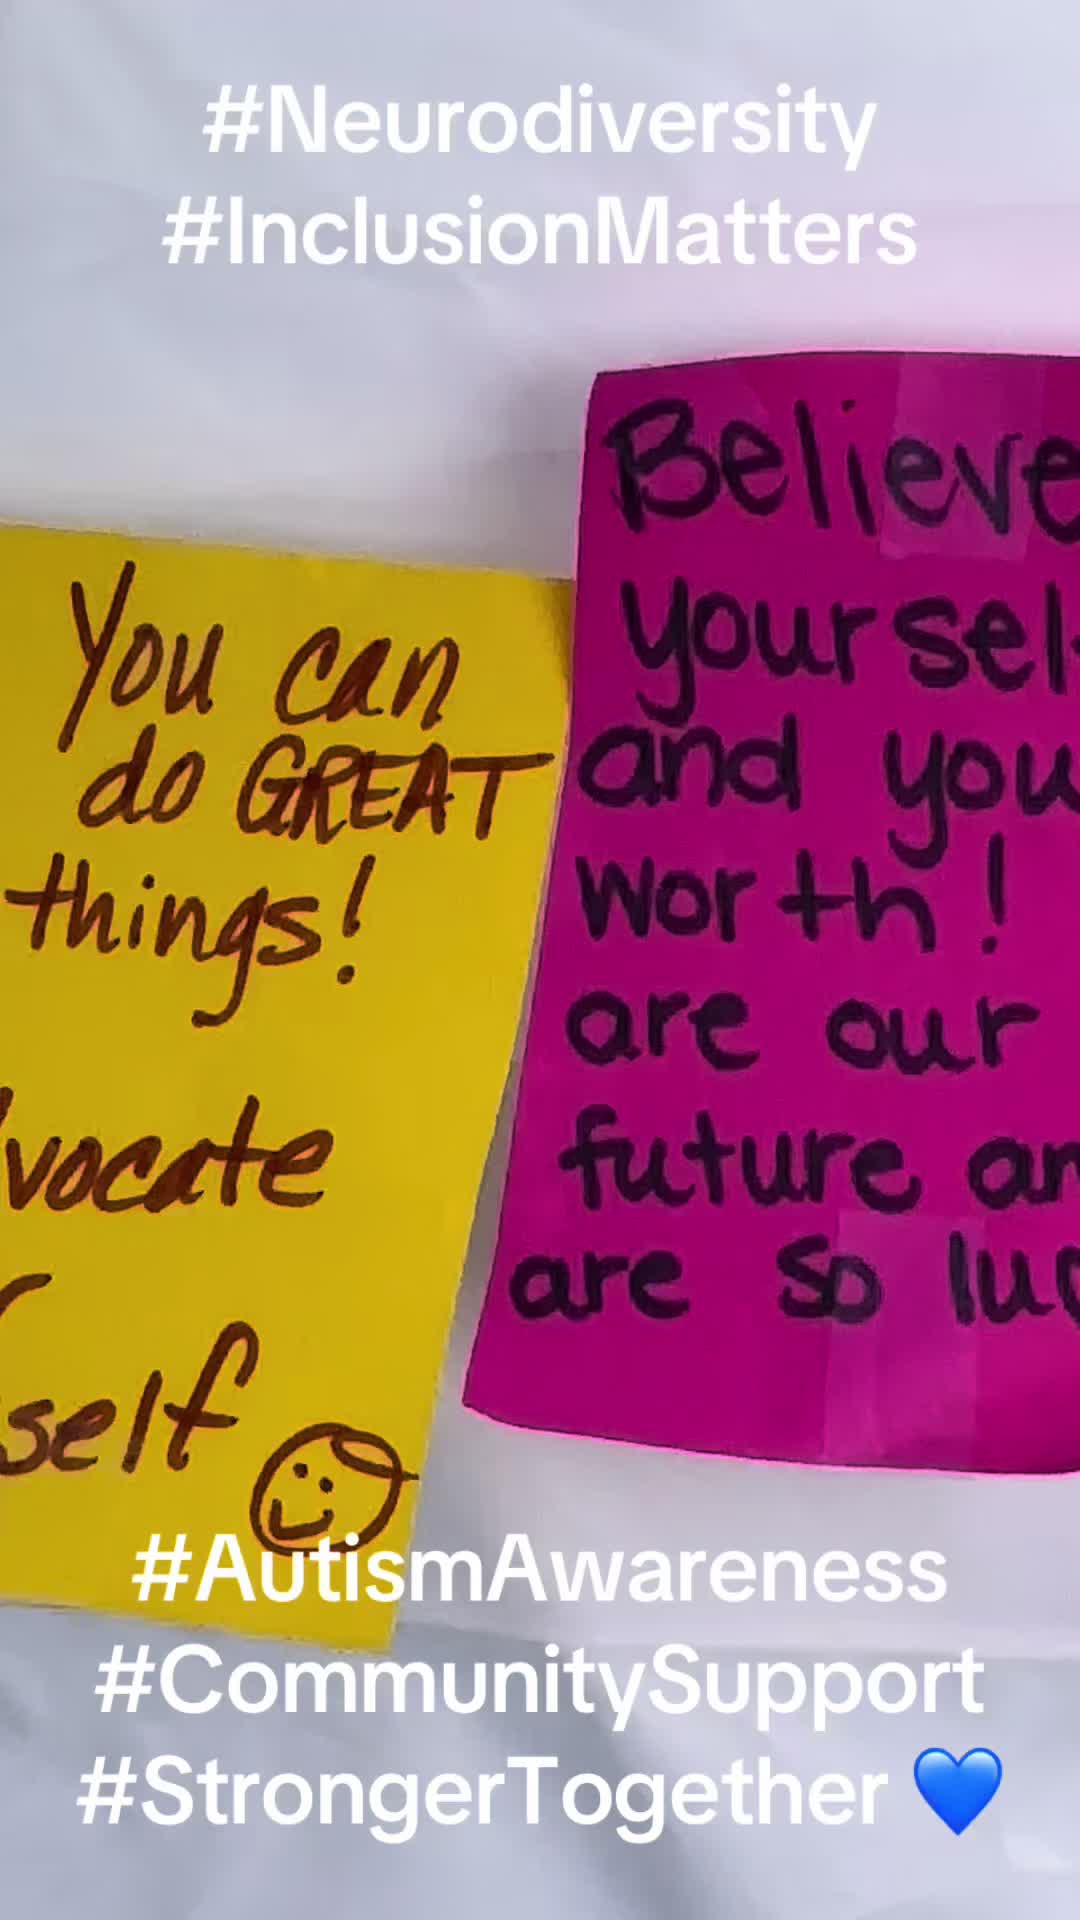 #Neurodiversity
#InclusionMatters
You can
do GREAT
things!
vocate
self
Believe
yoursel
and you
worth!
are our
future an
are so luc
#AutismAwareness
#CommunitySupport
#StrongerTogether 💙